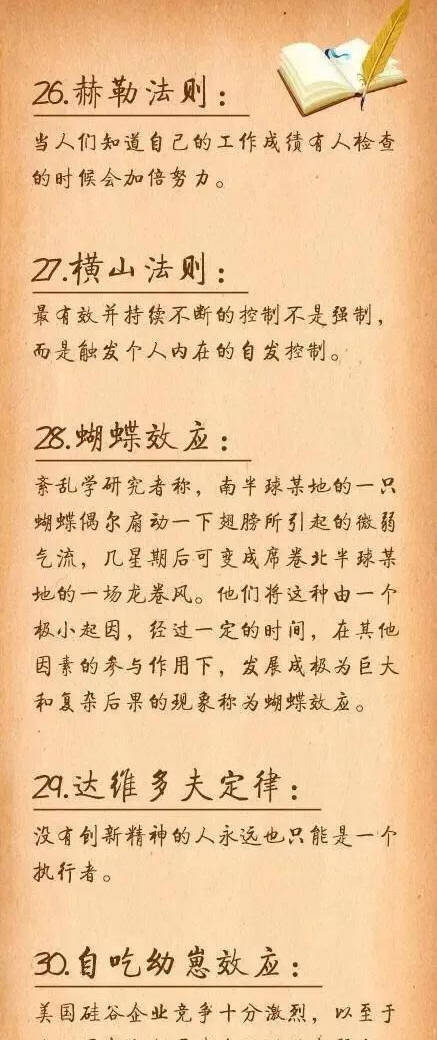 26.赫勒法则：
当人们知道自己的工作成绩有人检查
的时候会加倍努力。
27.横山法则：
最有效并持续不断的控制不是强制，
而是触发个人内在的自发控制。
28.蝴蝶效应：
紊乱学研究者称，南半球某地的一只
蝴蝶偶尔扇动一下翅膀所引起的微弱
气流，几星期后可变成席卷北半球某
地的一场龙卷风。他们将这种由一个
极小起因，经过一定的时间，在其他
因素的参与作用下，发展成极为巨大
和复杂后果的现象称为蝴蝶效应。
29.达维多夫定律：
没有创新精神的人永远也只能是一个
执行者。
30.自吃幼崽效应：
美国硅谷企业竞争十分激烈，以至于